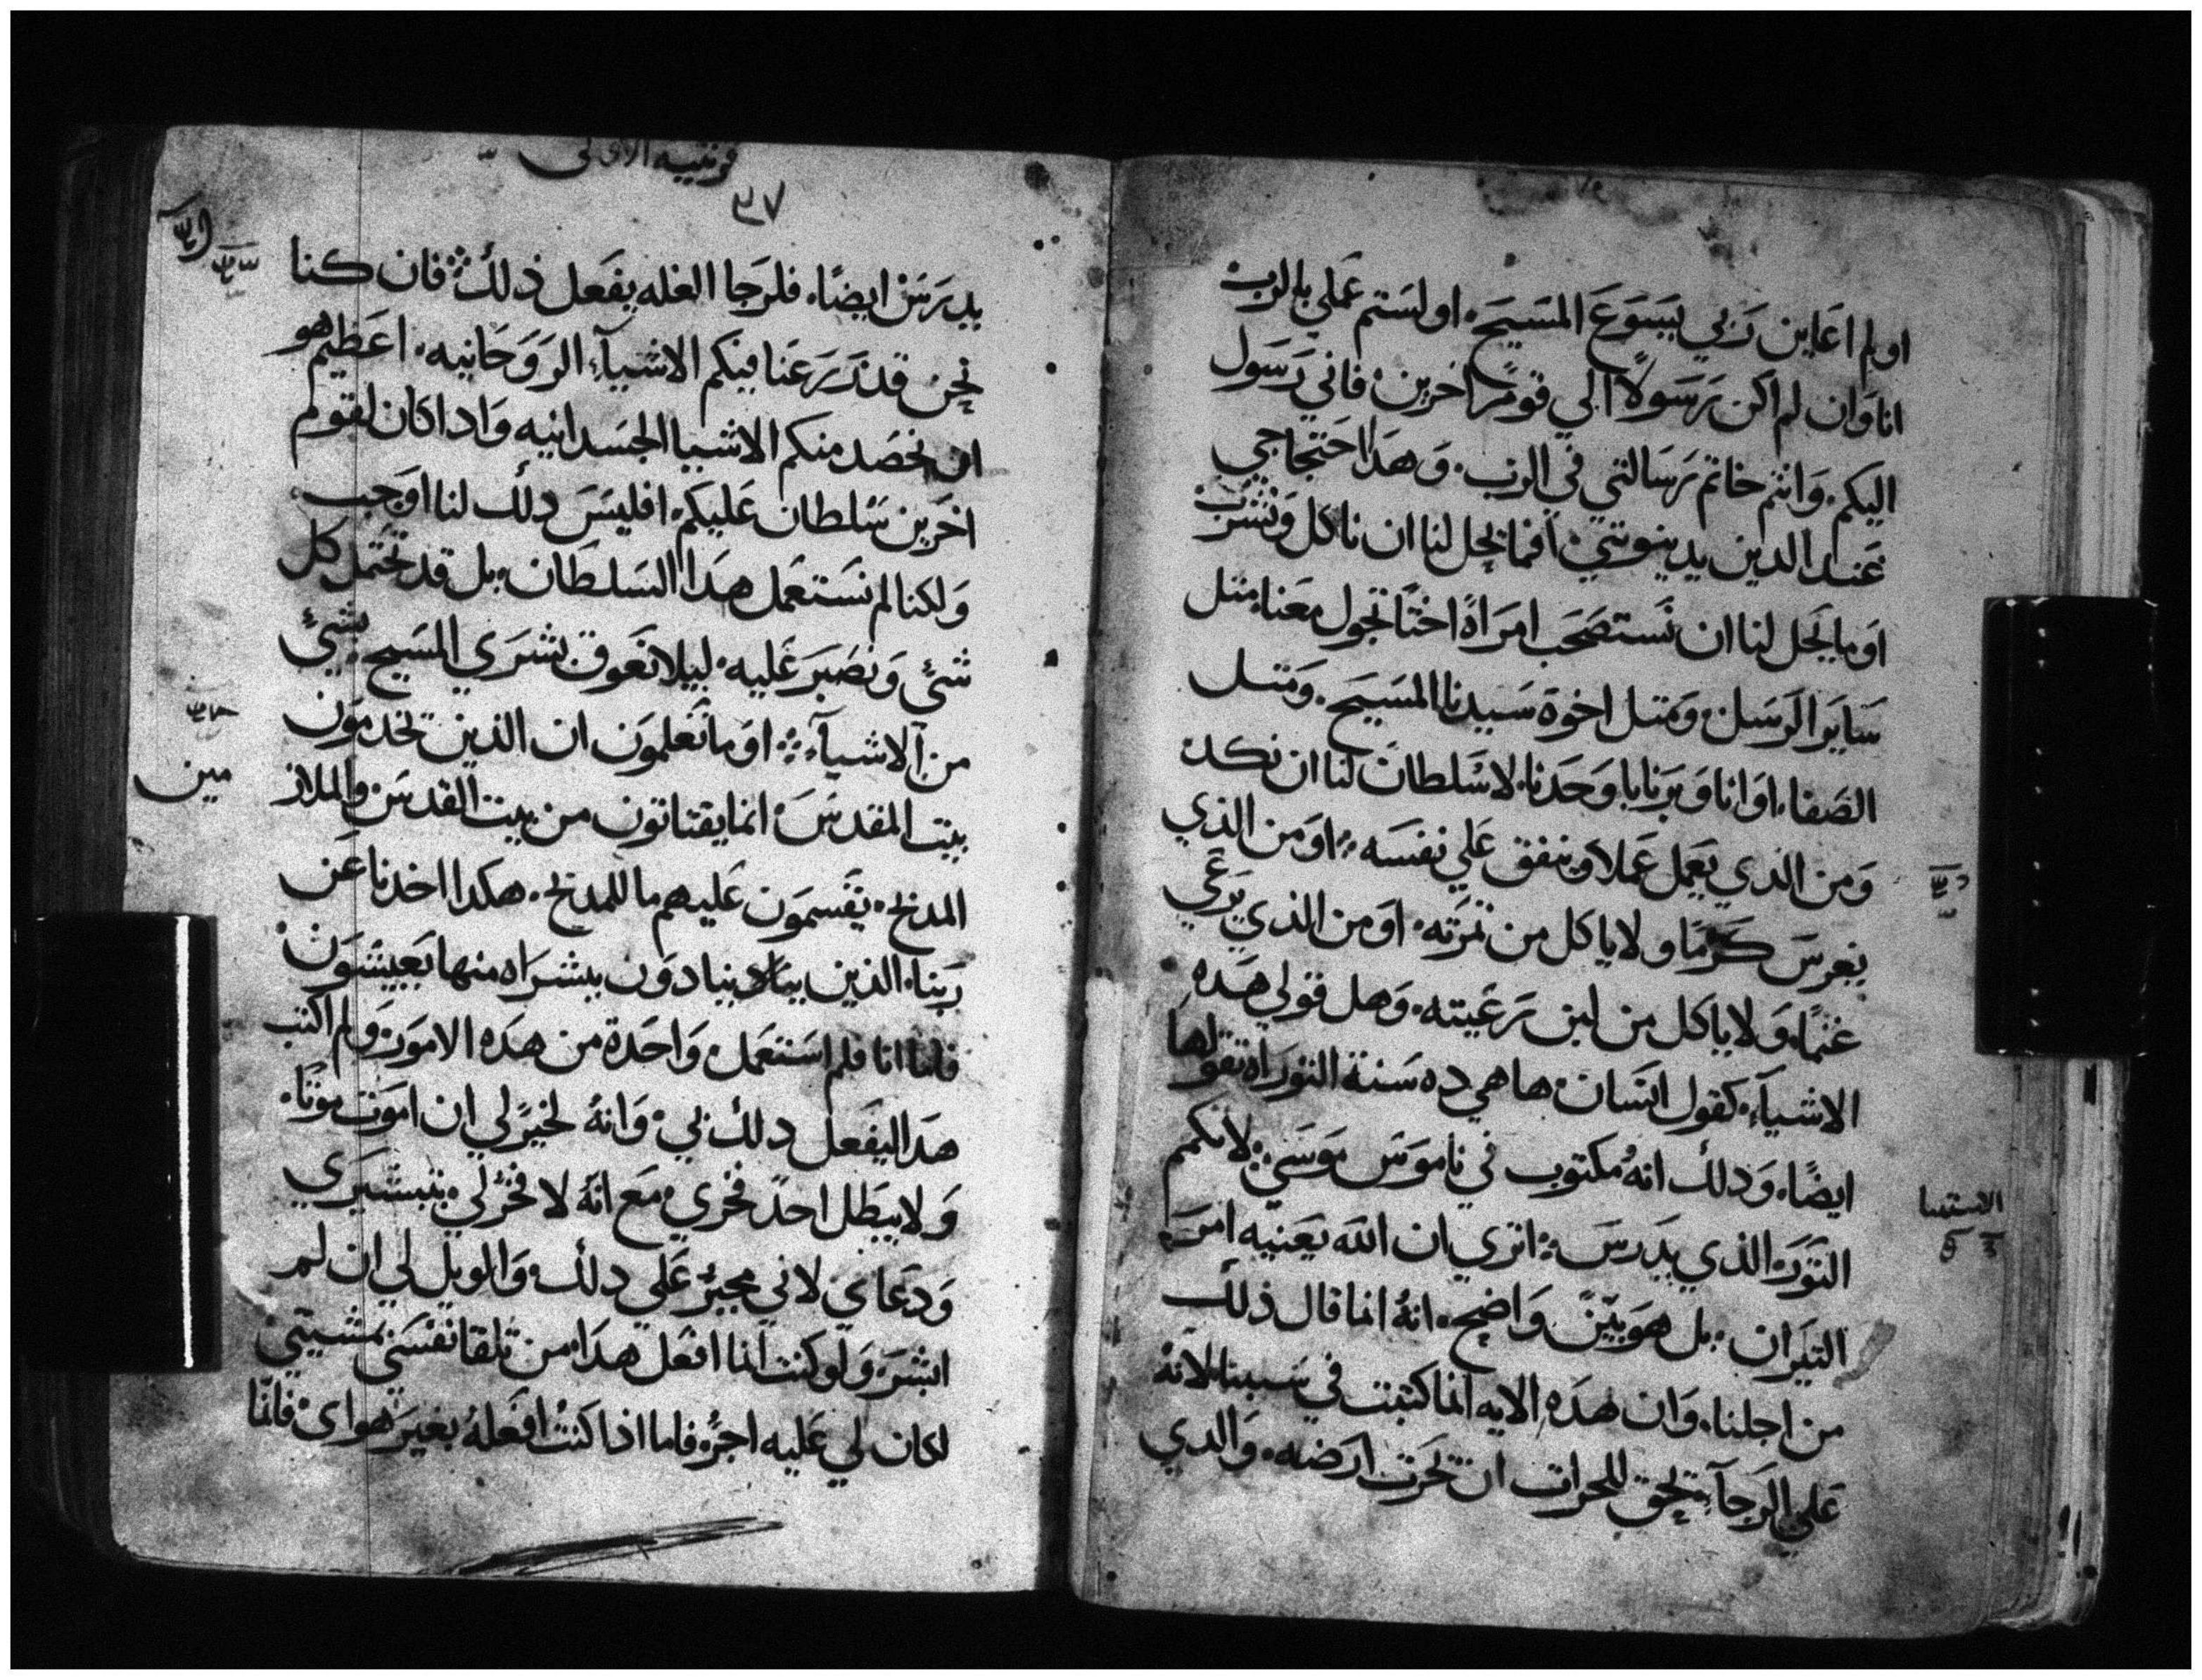 او لم اعاين ربي يسوع المسيح. او لستم عملي بالرب
انا وان لم اكن رسولاً الي قومً اخرين فاني رسول
اليكم. وانتم خاتم رسالتي في الرب. وهدا احتجاجي
عند الدين يدينونني. افما يحل لنا ان ناكل ونشرب
او ما يحل لنا ان نستصحب امراةً اختًا تجول معنا. متل
ساير الرسل. ومتل اخوة سيدنا المسيح. ومتل
الصفا. او انا وبرنابا وحدنا. لا سلطان لنا ان نكد
ومن الذي يعمل عملا وينفق علي نفسه. او من الذي
يغرس كرما ولا ياكل من تمرته. او من الذي يرعي
غنمًا. ولا ياكل من لبن رعيته. وهل قولي هده
الاشياء. كقول انسان. ها هي ده سنة التوراه تقولها
ايضًا. ودلك انهُ مكتوب في ناموس موسي. لا تكمم
التور الذي يدرس. اتري ان الله يعنيه امر
التيران. بل هو بيّنً واضح. انهُ انما قال ذلك
من اجلنا. وان هده الايه انما كتبت في سببنا. لانهُ
علي الرجآ يحق للحرات ان يحرت ارضه. والدي
قرنتيه الاولي
٣٧
يدرس ايضًا. فلرجا الغله يفعل ذلك. فان كنا
نحن قد زرعنا فيكم الاشيآء الروحانيه. اعظيم هو
ان نحصد منكم الاشيا الجسدانيه وادا كان لقوم
اخرين سلطان عليكم. افليس دلك لنا اوجب
ولكنا لم نستعمل هدا السلطان. بل قد نحتمل كل
شئ ونصبر عليه. ليلا نعوق بشري المسيح بشئٍ
من الاشيآء. او ما تعلمون ان الذين يخدمون
بيت المقدس. انما يقتاتون من بيت القدس والملاز
مين
المدبح. يقسمون عليهم ما للمدبح. هكدا اخدنا عن
ربنا. الذين ينادون ببشراه منها يعيشون
فاما انا فلم استعمل واحدة من هده الامور. ولم اكتب
هدا ليفعل دلك بي. وانهُ لخيرً لي ان اموت موتًا.
ولا يبطل احدً فخري. مع انهُ لا فخرً لي. بتبشيري
ودعاي لاني مجبرً علي دلك. والويل لي ان لم
ابشر. ولو كنت انا افعل هدا. من تلقا نفسي بمشيتي
لكان لي عليه اجرً. فاما اذا كنتُ افعلهُ بغير هواى. فانما